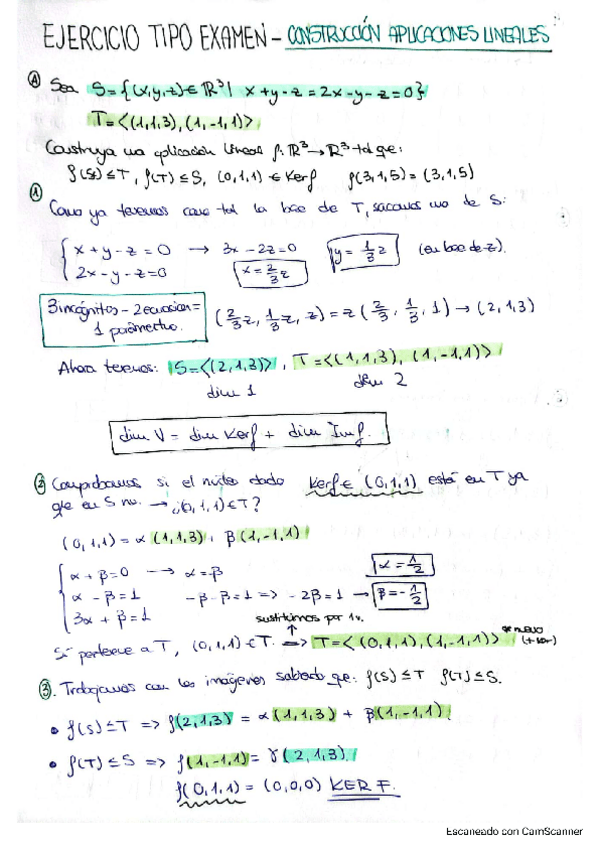 EJERCICIO TIPO EXAMEN - CONSTRUCCIÓN APLICACIONES LINEALES
A Sea S={(x,y,z)∈ℝ³| x+y-z=2x-y-z=0}
T=<(1,1,3),(1,-1,1)>
Construya una aplicación lineal f:ℝ³→ℝ³ tal que:
f(S)≤T, f(T)≤S, (0,1,1)∈Kerf f(3,1,5)=(3,1,5)
1 Como ya tenemos como tal la base de T, sacamos una de S:
{ x+y-z=0 → 3x-2z=0 y=1/3z (en base de z).
2x-y-z=0 x=2/3z
3 incógnitas - 2 ecuaciones =
1 parámetro. (2/3z, 1/3z, z) = z(2/3, 1/3, 1) → (2,1,3)
Ahora tenemos: S=<(2,1,3)>, T=<(1,1,3), (1,-1,1)>
dim 1 dim 2
dim V = dim Kerf + dim Imf.
2 Comprobamos si el núcleo dado Kerf∈(0,1,1) está en T ya
que en S no. → ¿(0,1,1)∈T?
(0,1,1)=α(1,1,3), β(1,-1,1)
{ α+β=0 → α=-β α=1/2
α-β=1 -β-β=1 => -2β=1 → β=-1/2
3α+β=1
sustituimos por 1v.
Sí pertenece a T, (0,1,1)∈T. => T=<(0,1,1),(1,-1,1)> *nuevo
3. Trabajamos con las imágenes sabiendo que: f(S)≤T f(T)≤S.
• f(S)≤T => f(2,1,3) = α(1,1,3) + β(1,-1,1)
• f(T)≤S => f(1,-1,1)= γ(2,1,3)
f(0,1,1) = (0,0,0) KER F.
Escaneado con CamScanner